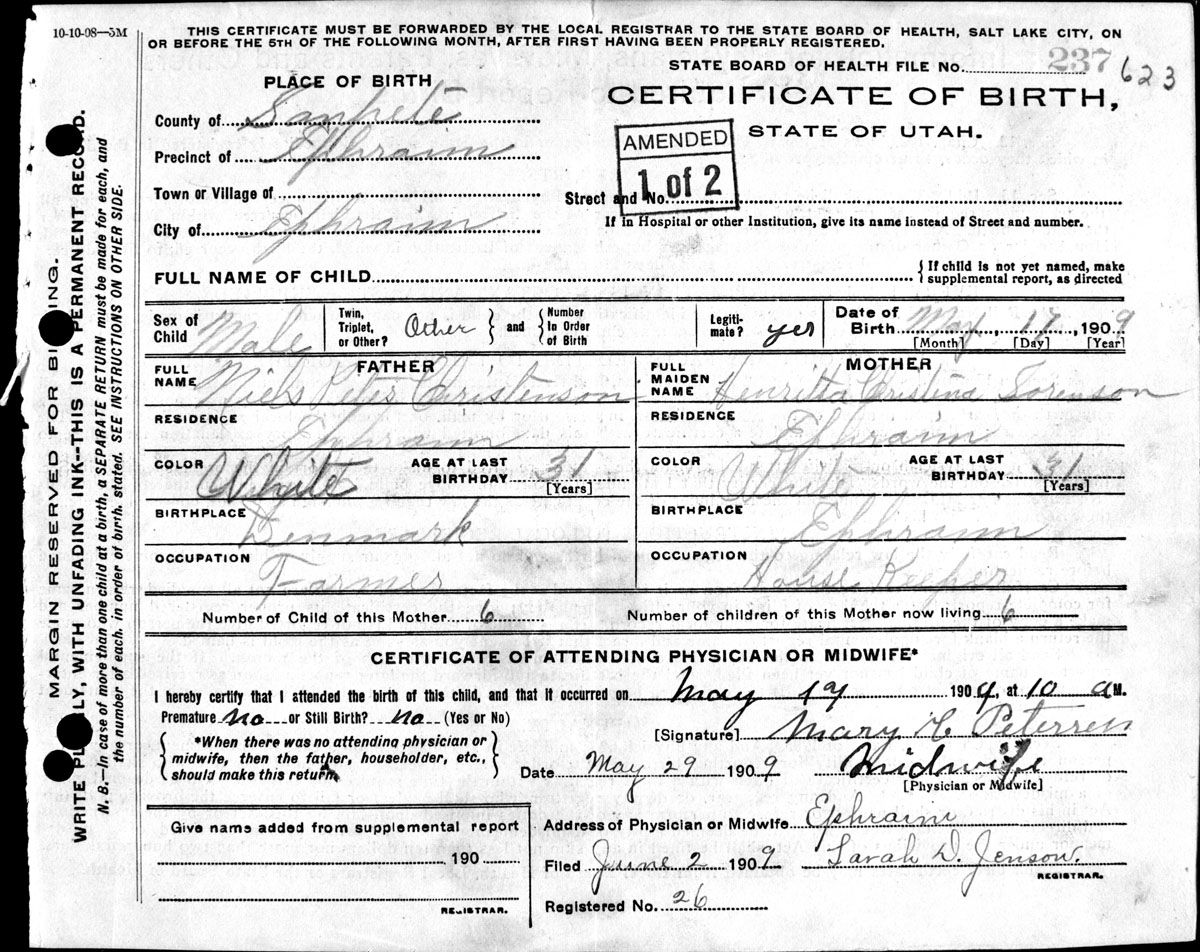 10-10-08—5M
THIS CERTIFICATE MUST BE FORWARDED BY THE LOCAL REGISTRAR TO THE STATE BOARD OF HEALTH, SALT LAKE CITY, ON
OR BEFORE THE 5TH OF THE FOLLOWING MONTH, AFTER FIRST HAVING BEEN PROPERLY REGISTERED.
STATE BOARD OF HEALTH FILE No. 237 623
PLACE OF BIRTH
CERTIFICATE OF BIRTH,
STATE OF UTAH.
AMENDED
1 of 2
County of Sanpete
Precinct of Ephraim
Town or Village of
Street and No.
City of Ephraim
If in Hospital or other Institution, give its name instead of Street and number.
FULL NAME OF CHILD
{If child is not yet named, make
supplemental report, as directed
Sex of Child Male
Twin, Triplet, or Other? Other } and { Number In Order of Birth
Legiti-mate? yes
Date of Birth May, 17, 1909
[Month] [Day] [Year]
FATHER
FULL NAME Niels Peter Christenson
RESIDENCE Ephraim
COLOR White AGE AT LAST BIRTHDAY 31
[Years]
BIRTHPLACE Denmark
OCCUPATION Farmer
MOTHER
FULL MAIDEN NAME Henritta Cristina Sorenson
RESIDENCE Ephraim
COLOR White AGE AT LAST BIRTHDAY 31
[Years]
BIRTHPLACE Ephraim
OCCUPATION House Keeper
Number of Child of this Mother 6 Number of children of this Mother now living 6
CERTIFICATE OF ATTENDING PHYSICIAN OR MIDWIFE*
I hereby certify that I attended the birth of this child, and that it occurred on May 17 1909, at 10 a M.
Premature No or Still Birth? No (Yes or No)
[Signature] Mary C Petersen
{*When there was no attending physician or
midwife, then the father, householder, etc.,
should make this return.}
Date May 29 1909 Midwife
[Physician or Midwife]
Give name added from supplemental report
190
REGISTRAR.
Address of Physician or Midwife Ephraim
Filed June 2 1909 Sarah D. Jenson.
REGISTRAR.
Registered No. 26
MARGIN RESERVED FOR
WRITE WITH UNFADING INK--THIS IS A PERMANENT
N. B.—In case of more than one child at a birth, a SEPARATE RETURN must be made for each, and
the number of each, in order of birth, stated. SEE INSTRUCTIONS ON OTHER SIDE.